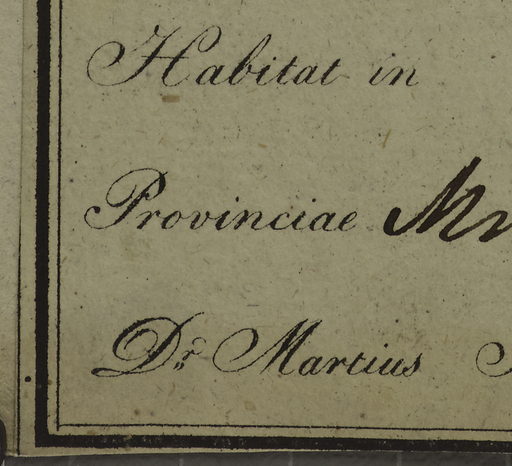 Habitat in
Provinciae
Dr. Martius